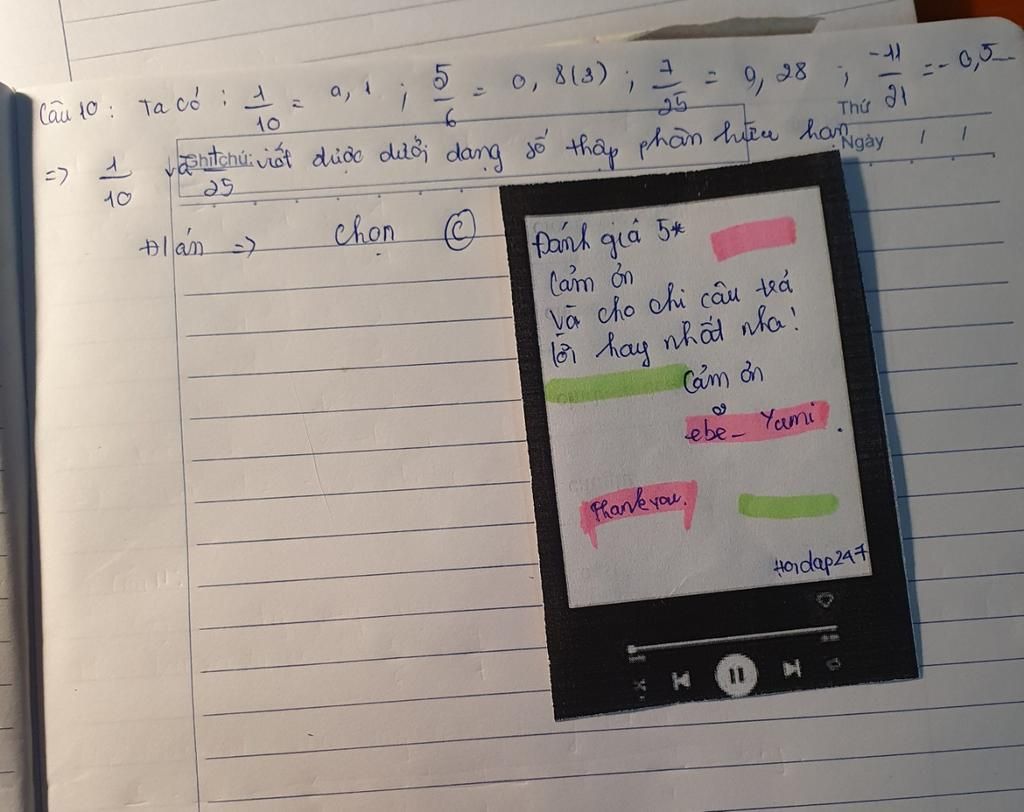 Câu 10 : Ta có : 1/10 = 0, 1 ; 5/6 = 0, 8(3) ; 7/25 = 0, 28 ; -11/21 = - 0,5...
Thứ
=> 1/10 và /25 viết được dưới dạng số thập phân hữu hạn
Ghi chú:
Ngày / /
Đ/ án => Chọn C
Đánh giá 5*
Cảm ơn
và cho chi câu trả
lời hay nhất nha!
Cảm ơn
ebe_ Yumi .
Thank you.
Hoidap247